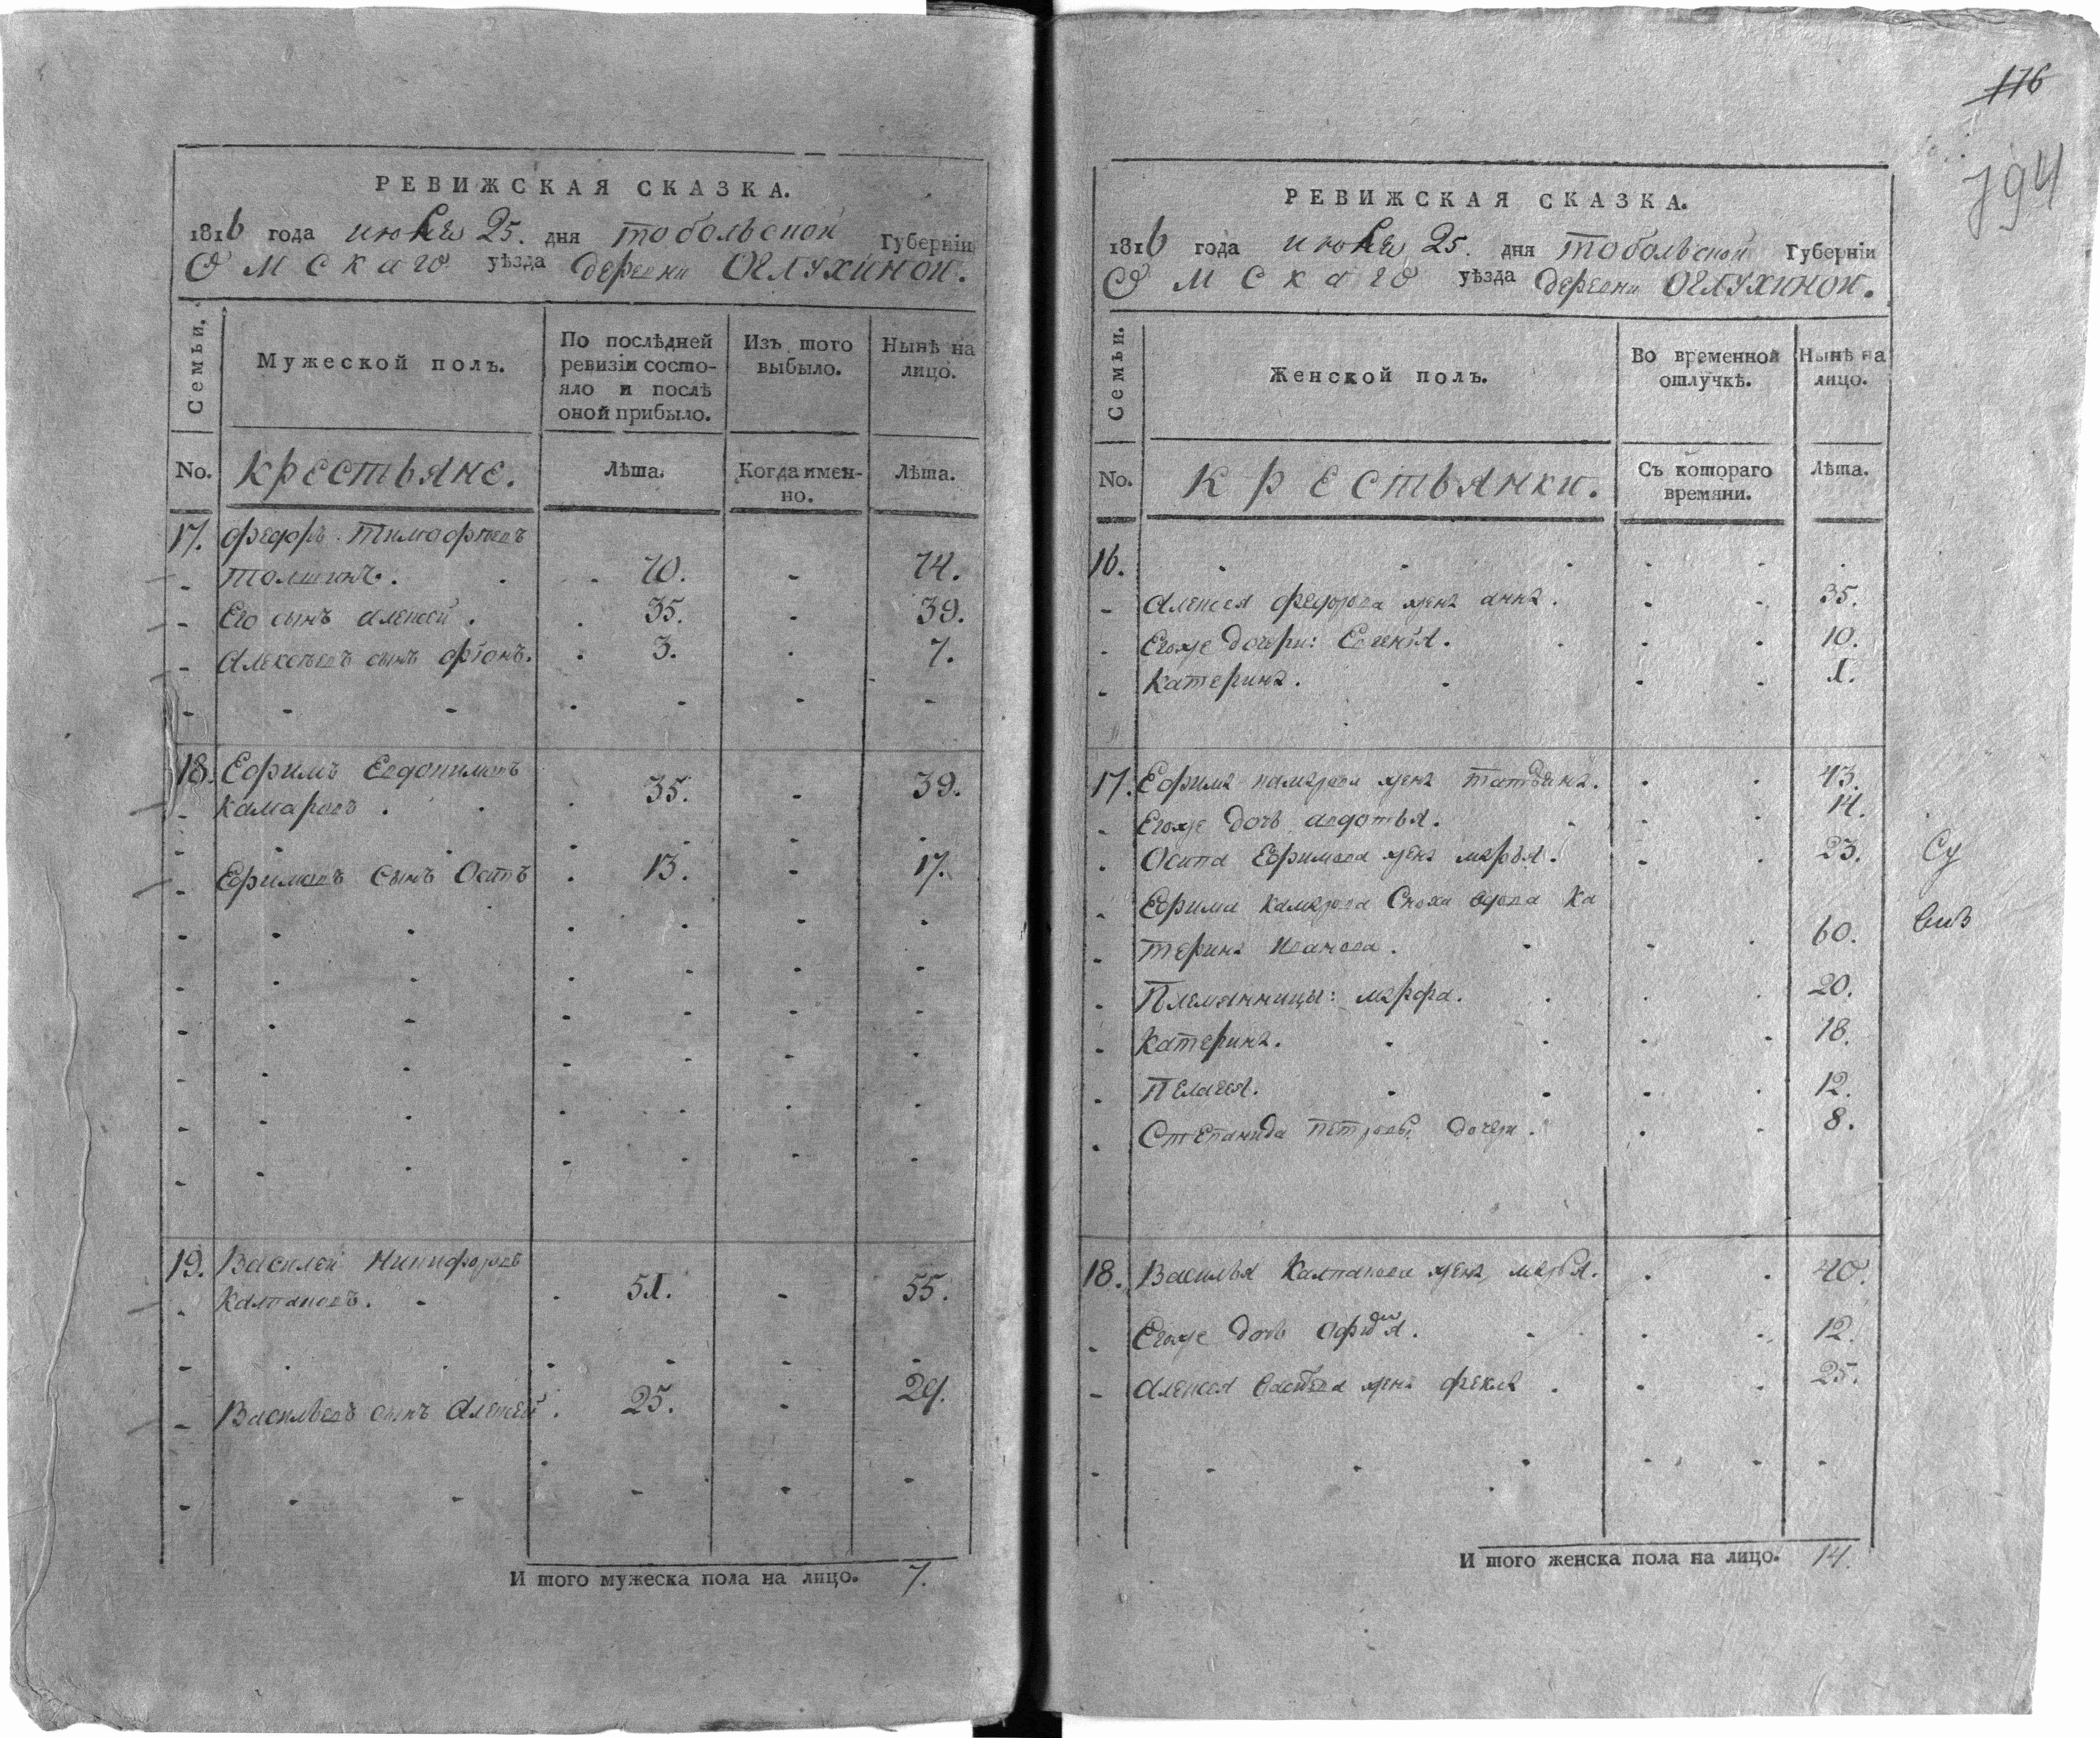 РЕВИЖСКАЯ СКАЗКА.
1816 года июня 25. дня тобольской Губерніи
Омскаго уѣзда деревни Оглухиной.
Семьи.
Мужеской полъ.
По послѣдней ревизіи состояло и послѣ оной прибыло.
Изъ того выбыло.
Нынѣ на лицо.
No. Крестьяне. Лѣта. Когда именно. Лѣта.
17. Федоръ Тимофѣевъ
Толшинъ. 70. - 74.
Его сынъ Алексей. 35. - 39.
Алексѣевъ сынъ Фіонъ. 3. 7.
18. Ефимъ Евдокимовъ
Камаровъ. 35. - 39.
Ефимовъ сынъ Осипъ 13. - 17.
19. Василей Никифоровъ
Калпаковъ. 51. - 55.
Васильевъ сынъ Алексей. 25. - 29.
И того мужеска пола на лицо. 7.
176
194
РЕВИЖСКАЯ СКАЗКА.
1816 года июня 25. дня Тобольской Губерніи
Омскаго уѣзда деревни Оглухиной.
Семьи.
Женской полъ.
Во временной отлучкѣ.
Нынѣ на лицо.
No. Крестьянки. Съ котораго времяни. Лѣта.
16.
Алексея Федорова жена анна. 35.
Егоже дочери: Евгенія. 10.
Катерина. 1.
17. Ефима камарова жена татьяна. 43.
Егоже дочь авдотья. 14.
Осипа Ефимова жена марья. 23. Су
Ефима камарова Сноха вдова Ка
терина Иванова. 60.
Племянницы: марфа. 20.
Катерина. 18.
Пелагея. 12.
Степанида Петровы дочери. 8.
18. Василья Калпакова жена марья. 40.
Егоже дочь 12.
Алексея Васильева жена фекла. 25.
И того женска пола на лицо. 14.